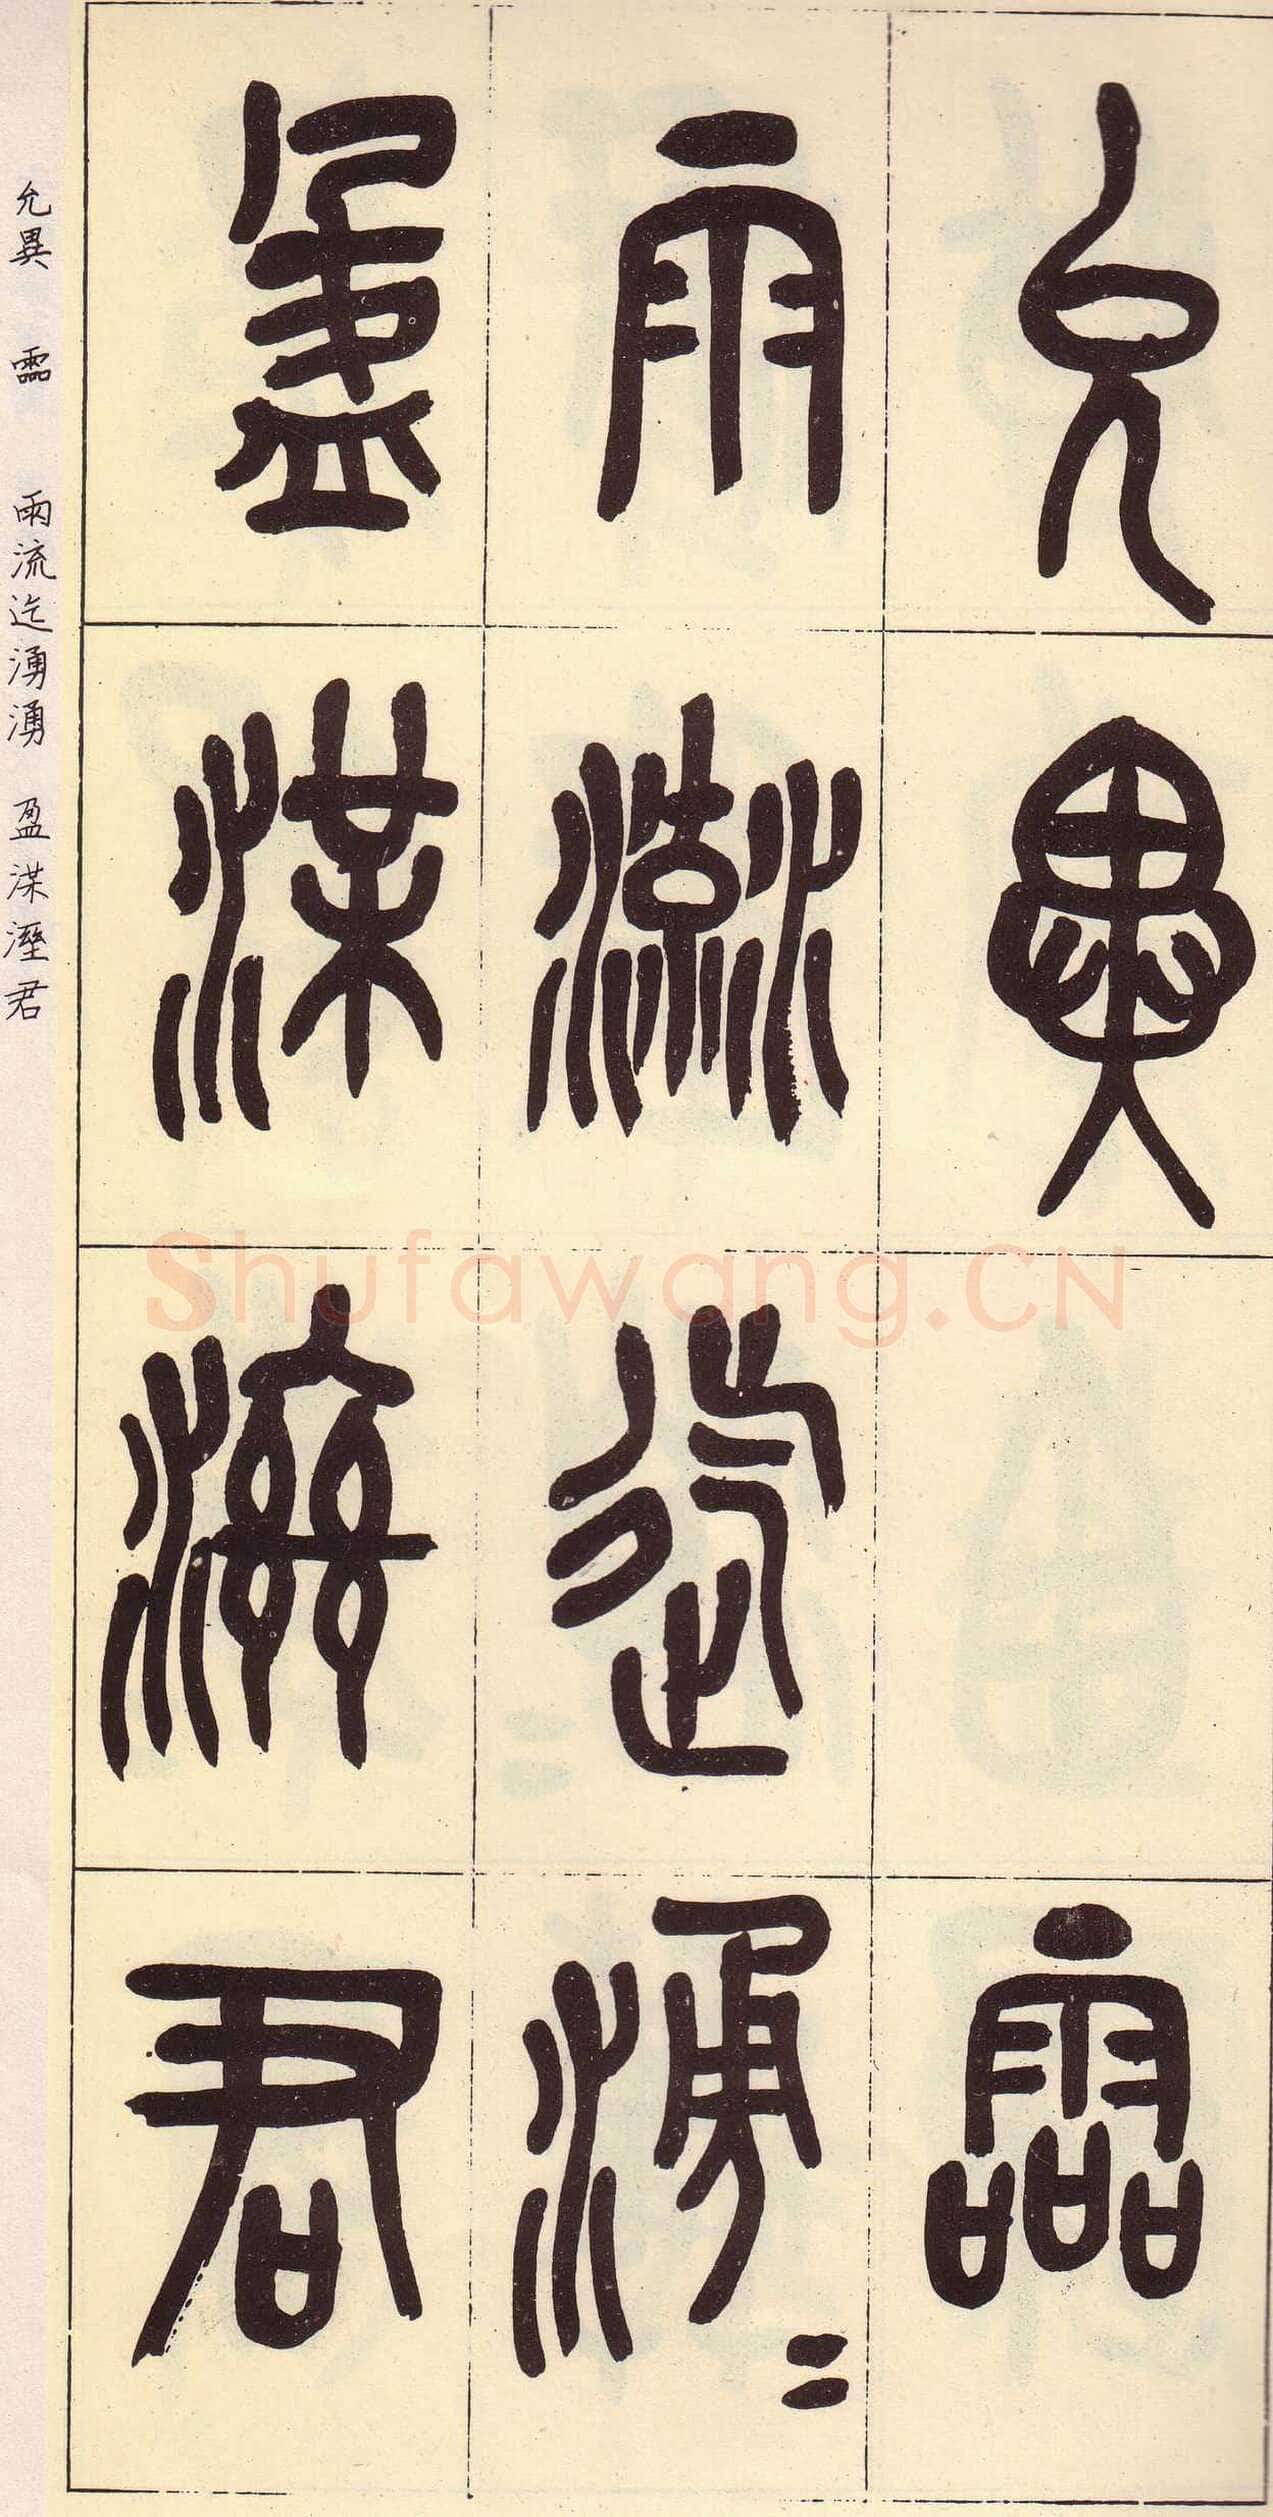 允異 霝
雨流迄湧=
盈渫溼君
允異 霝 雨流迄湧湧 盈渫溼君
Shufawang.CN